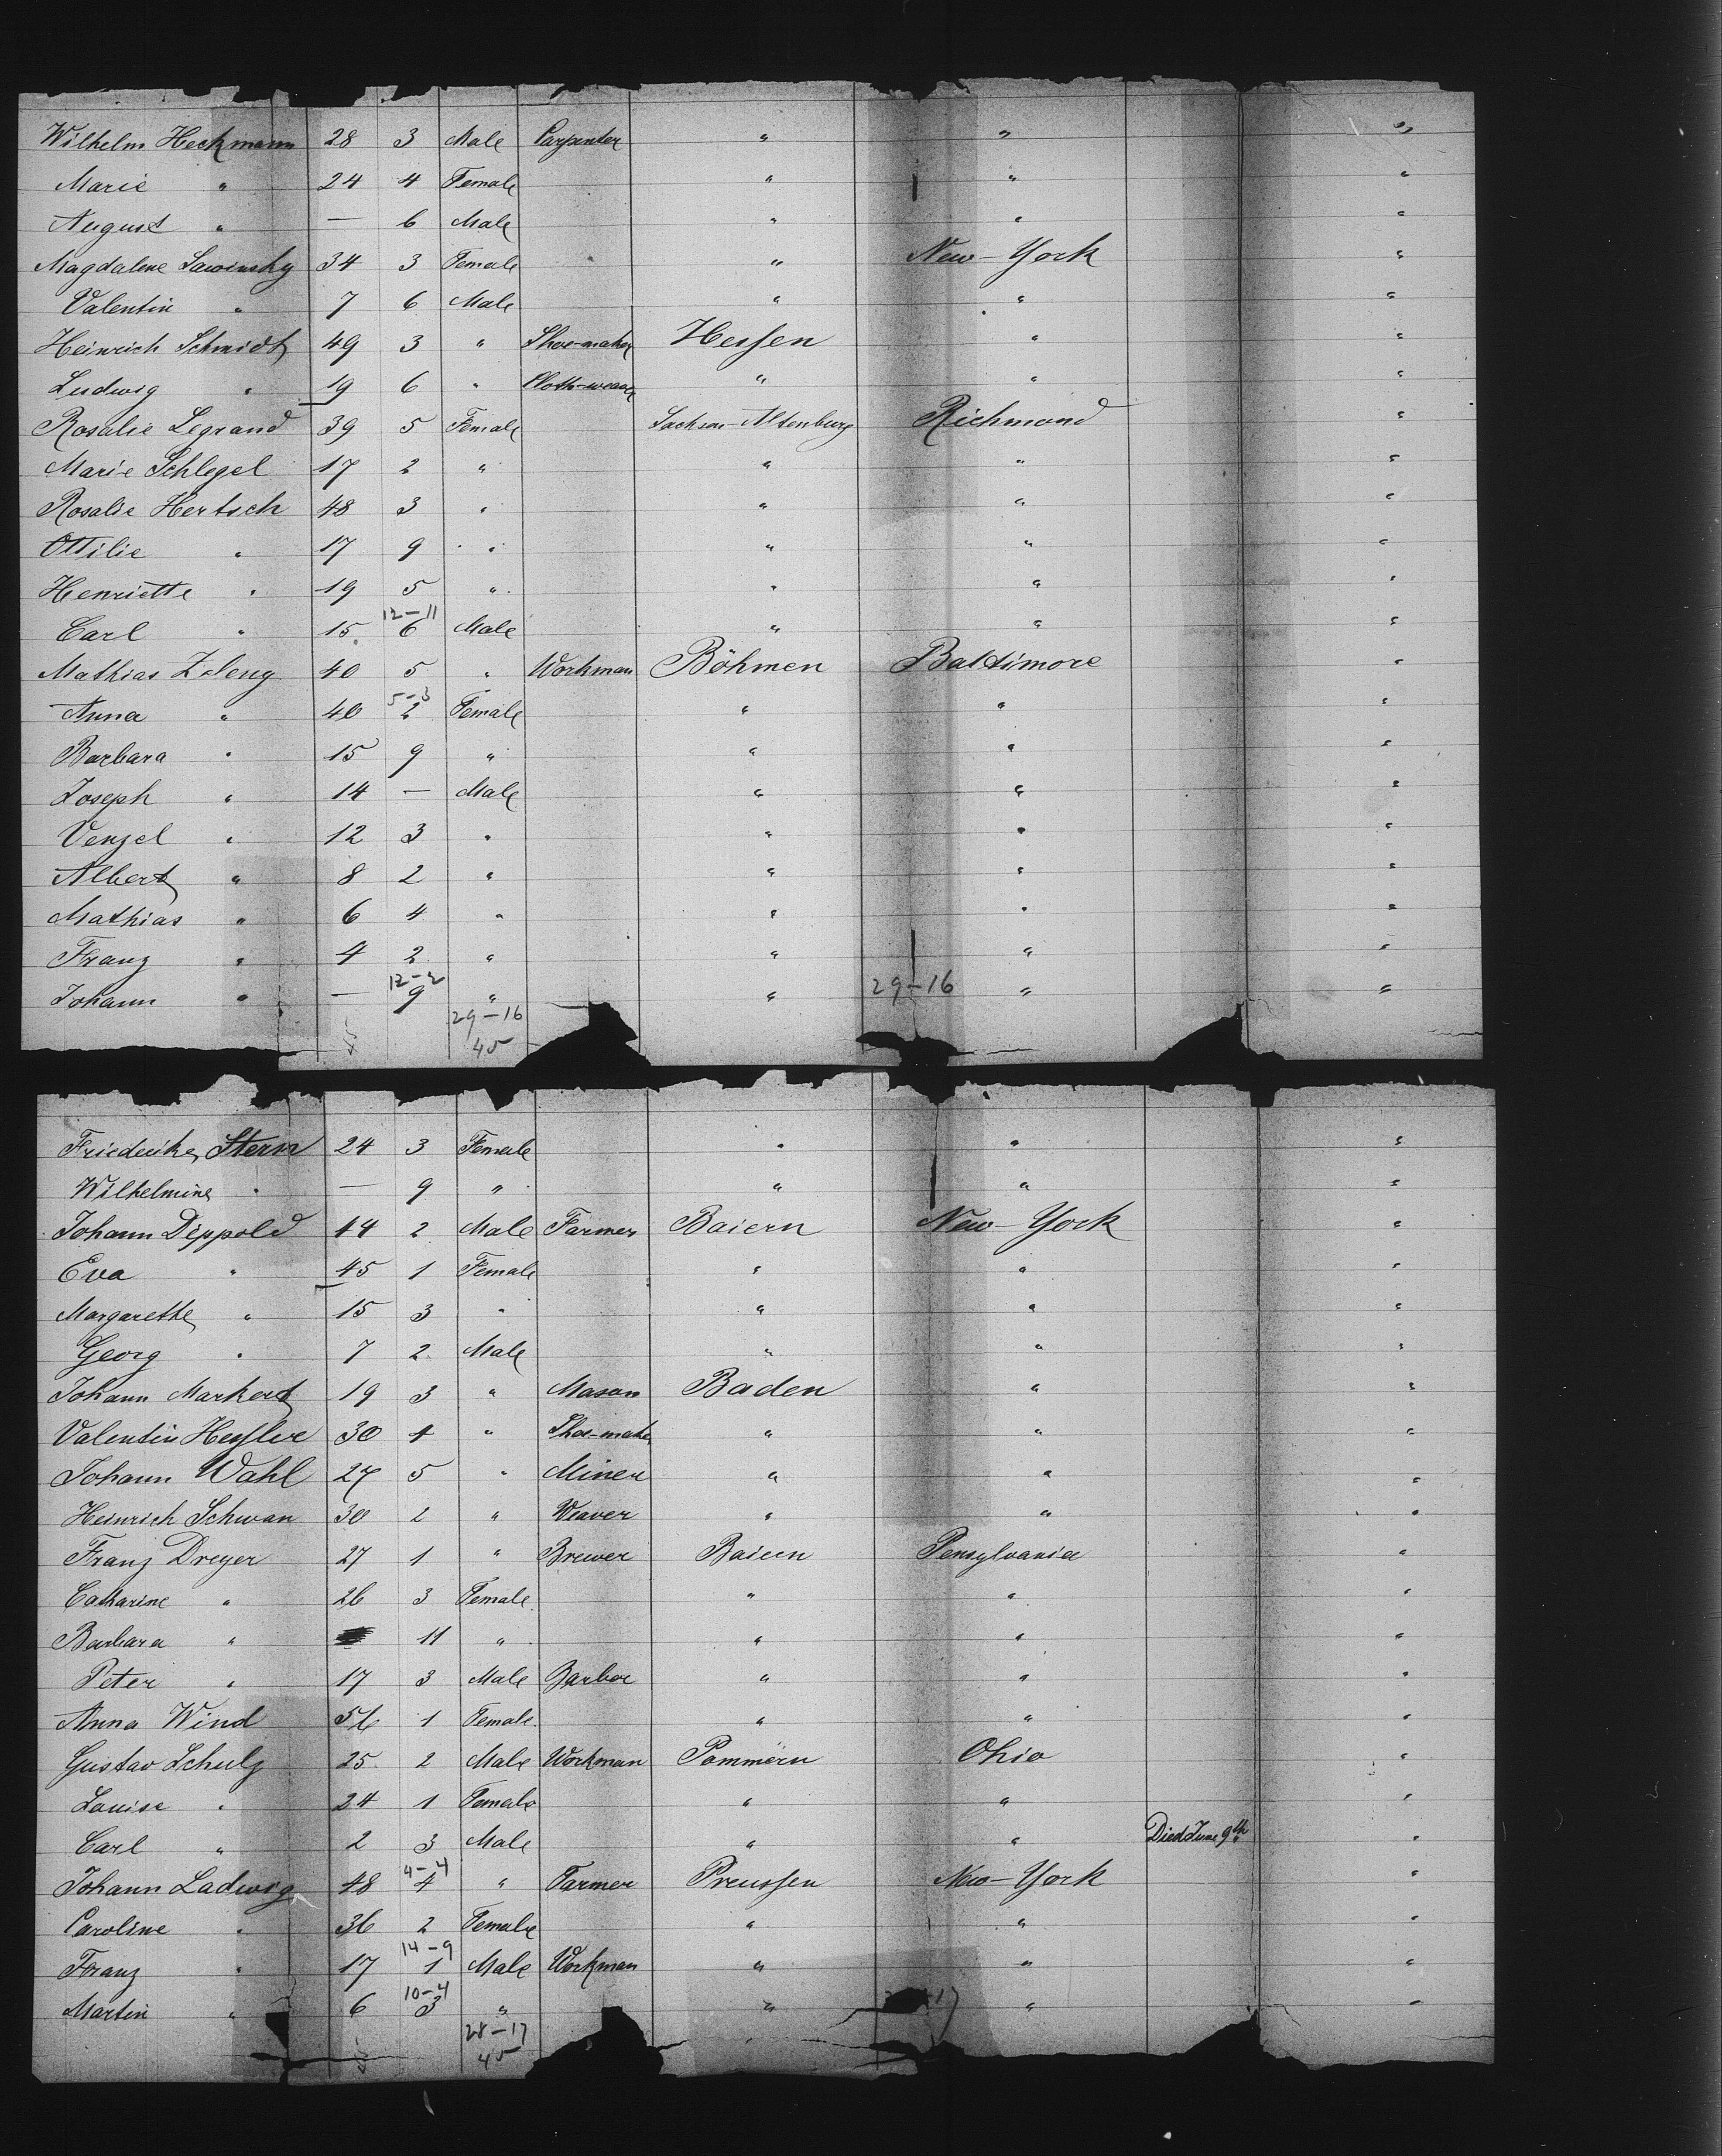 Wilhelm Heckmann 28 3 Male Carpenter " " "
Marie " 24 4 Female " " "
August " — 6 Male " " "
Magdalene Sawinsky 34 3 Female " New-York "
Valentin " 7 6 Male " " "
Heinrich Schmidt 49 3 " Shoe-maker Hessen " "
Ludwig " 19 6 " Cloth-weaver " " "
Rosalie Legrand 39 5 Female Sachsen-Altenburg Richmond "
Marie Schlegel 17 2 " " " "
Rosalie Hertsch 48 3 " " " "
Ottilie " 17 9 " " " "
Henriette " 19 5 " " " "
12-11
Carl " 15 6 Male " " "
Mathias Zeleny 40 5 " Workman Böhmen Baltimore "
5-3
Anna " 40 2 Female " " "
Barbara " 15 9 " " " "
Joseph " 14 — Male " " "
Venzel " 12 3 " " " "
Albert " 8 2 " " " "
Mathias " 6 4 " " " "
Franz " 4 2 " " " "
12-2 29-16
Johann " — 9 " " " "
29-16
45
Friederike Stern 24 3 Female " " "
Wilhelmine " — 9 " " " "
Johann Dippold 44 2 Male Farmer Baiern New-York "
Eva " 45 1 Female " " "
Margarethe " 15 3 " " " "
Georg " 7 2 Male " " "
Johann Markert 19 3 " Mason Baden " "
Valentin 30 4 " Shoe-maker " " "
Johann Wahl 27 5 " Miner " " "
Heinrich Schwan 30 2 " Weaver " " "
Franz Dreyer 27 1 " Brewer Baiern Pensylvania "
Catharine " 26 3 Female " " "
Barbara " 11 " " " "
Peter " 17 3 Male Barber " " "
Anna Wind 56 1 Female " " "
Gustav Schulz 25 2 Male Workman Pommern Ohio "
Louise " 24 1 Female " " "
Carl " 2 3 Male " " Died June 9th "
4-4
Johann Ladwig 48 4 " Farmer Preussen New-York "
Caroline " 36 2 Female " " "
14-9
Franz " 17 1 Male Workman " " "
10-4
Martin " 6 3 " " " "
28-17
45